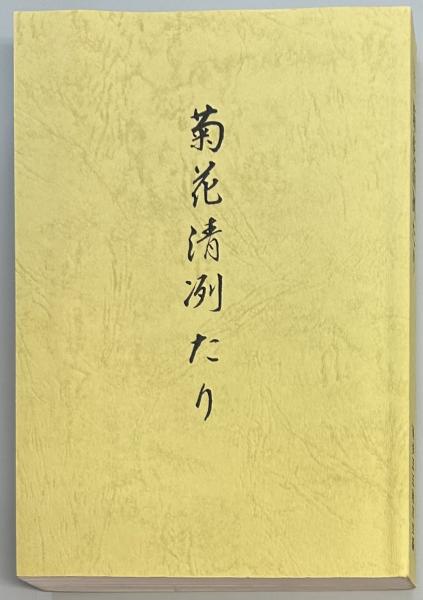 菊花清冽たり